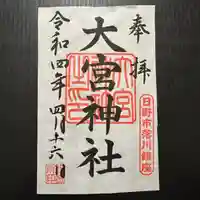 奉拝
日野市落川鎮座
大宮神社
令和四年四月十六日